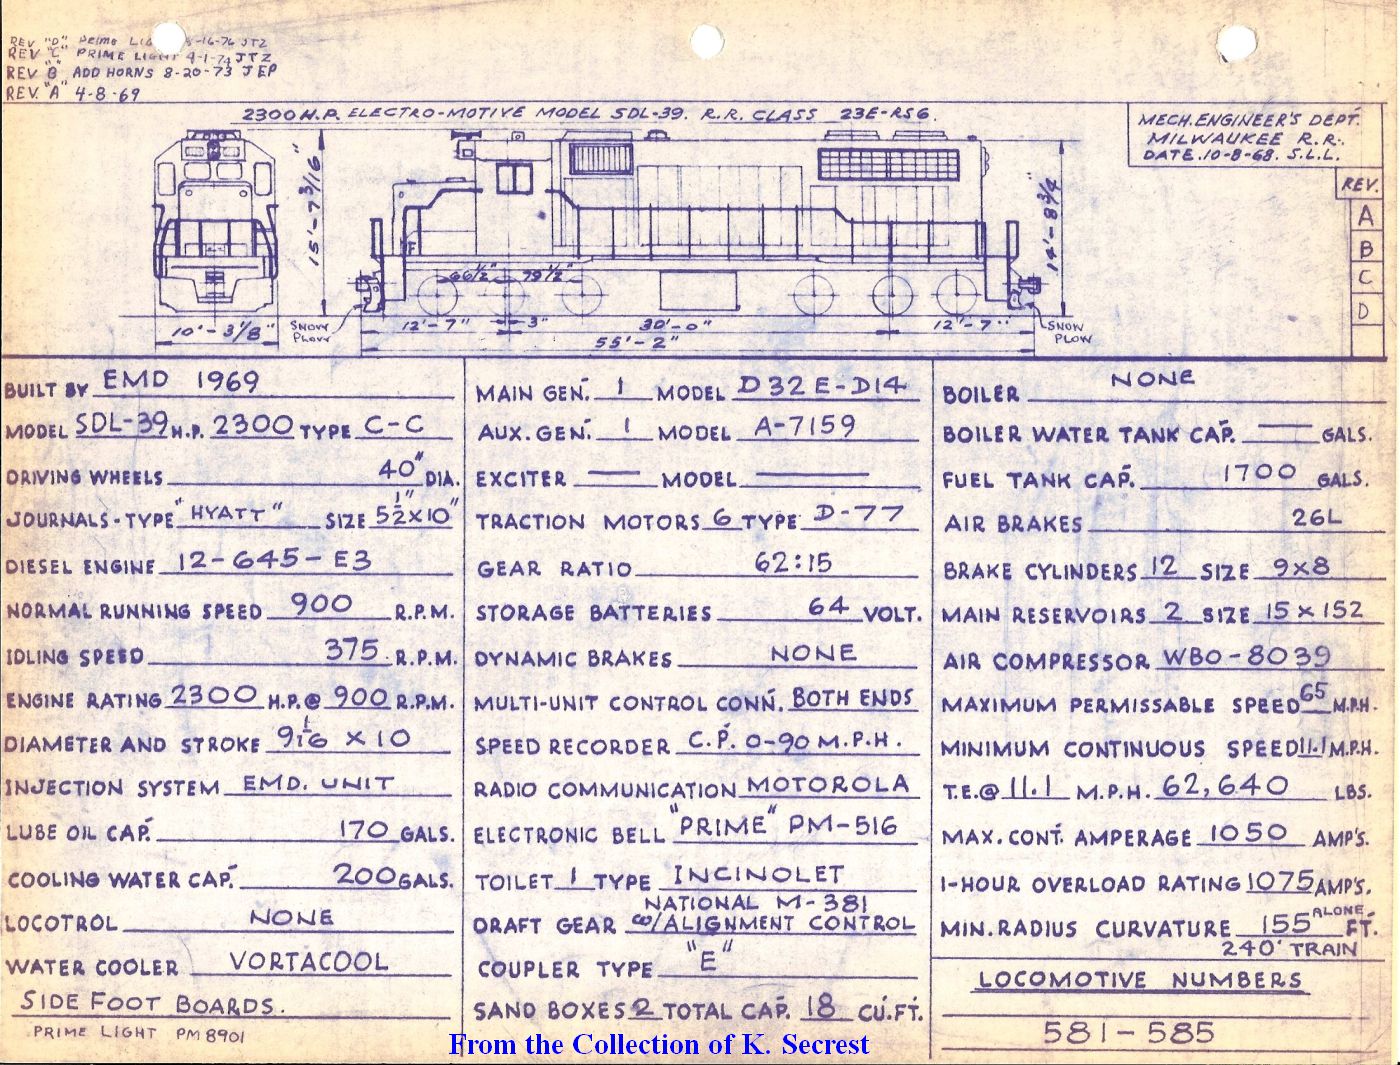 REV "D" PRIME LIGHT 8-16-76 JTZ
REV "C" PRIME LIGHT 4-1-74 JTZ
REV "B" ADD HORNS 8-20-73 JEP
REV. "A" 4-8-69
2300 H.P. ELECTRO-MOTIVE MODEL SDL-39. R.R. CLASS 23E-RS6.
MECH. ENGINEER'S DEPT.
MILWAUKEE R.R.
DATE. 10-8-68. S.L.L.
REV.
A
B
C
D
15'-7 3/16"
14'-8 3/4"
F
66 1/2" 79 1/2"
10'-3 1/8"
SNOW PLOW
12'-7" 3" 30'-0" 12'-7"
SNOW PLOW
55'-2"
BUILT BY EMD 1969
MODEL SDL-39 H.P. 2300 TYPE C-C
DRIVING WHEELS 40" DIA.
JOURNALS-TYPE "HYATT" SIZE 5 1/2" X 10"
DIESEL ENGINE 12-645-E3
NORMAL RUNNING SPEED 900 R.P.M.
IDLING SPEED 375 R.P.M.
ENGINE RATING 2300 H.P.@ 900 R.P.M.
DIAMETER AND STROKE 9 1/16 X 10
INJECTION SYSTEM EMD. UNIT
LUBE OIL CAP. 170 GALS.
COOLING WATER CAP. 200 GALS.
LOCOTROL NONE
WATER COOLER VORTACOOL
SIDE FOOT BOARDS.
PRIME LIGHT PM 8901
MAIN GEN. 1 MODEL D32E-D14
AUX. GEN. 1 MODEL A-7159
EXCITER — MODEL —
TRACTION MOTORS 6 TYPE D-77
GEAR RATIO 62:15
STORAGE BATTERIES 64 VOLT.
DYNAMIC BRAKES NONE
MULTI-UNIT CONTROL CONN. BOTH ENDS
SPEED RECORDER C.P. 0-90 M.P.H.
RADIO COMMUNICATION MOTOROLA
ELECTRONIC BELL "PRIME" PM-516
TOILET 1 TYPE INCINOLET
NATIONAL M-381
DRAFT GEAR W/ALIGNMENT CONTROL
COUPLER TYPE "E"
SAND BOXES 2 TOTAL CAP. 18 CU.FT.
BOILER NONE
BOILER WATER TANK CAP. — GALS.
FUEL TANK CAP. 1700 GALS.
AIR BRAKES 26L
BRAKE CYLINDERS 12 SIZE 9x8
MAIN RESERVOIRS 2 SIZE 15 x 152
AIR COMPRESSOR WBO-8039
MAXIMUM PERMISSABLE SPEED 65 M.P.H.
MINIMUM CONTINUOUS SPEED 11.1 M.P.H.
T.E.@ 11.1 M.P.H. 62,640 LBS.
MAX. CONT. AMPERAGE 1050 AMP'S.
1-HOUR OVERLOAD RATING 1075 AMP'S.
MIN. RADIUS CURVATURE 155 ALONE FT.
240' TRAIN
LOCOMOTIVE NUMBERS
581-585
From the Collection of K. Secrest